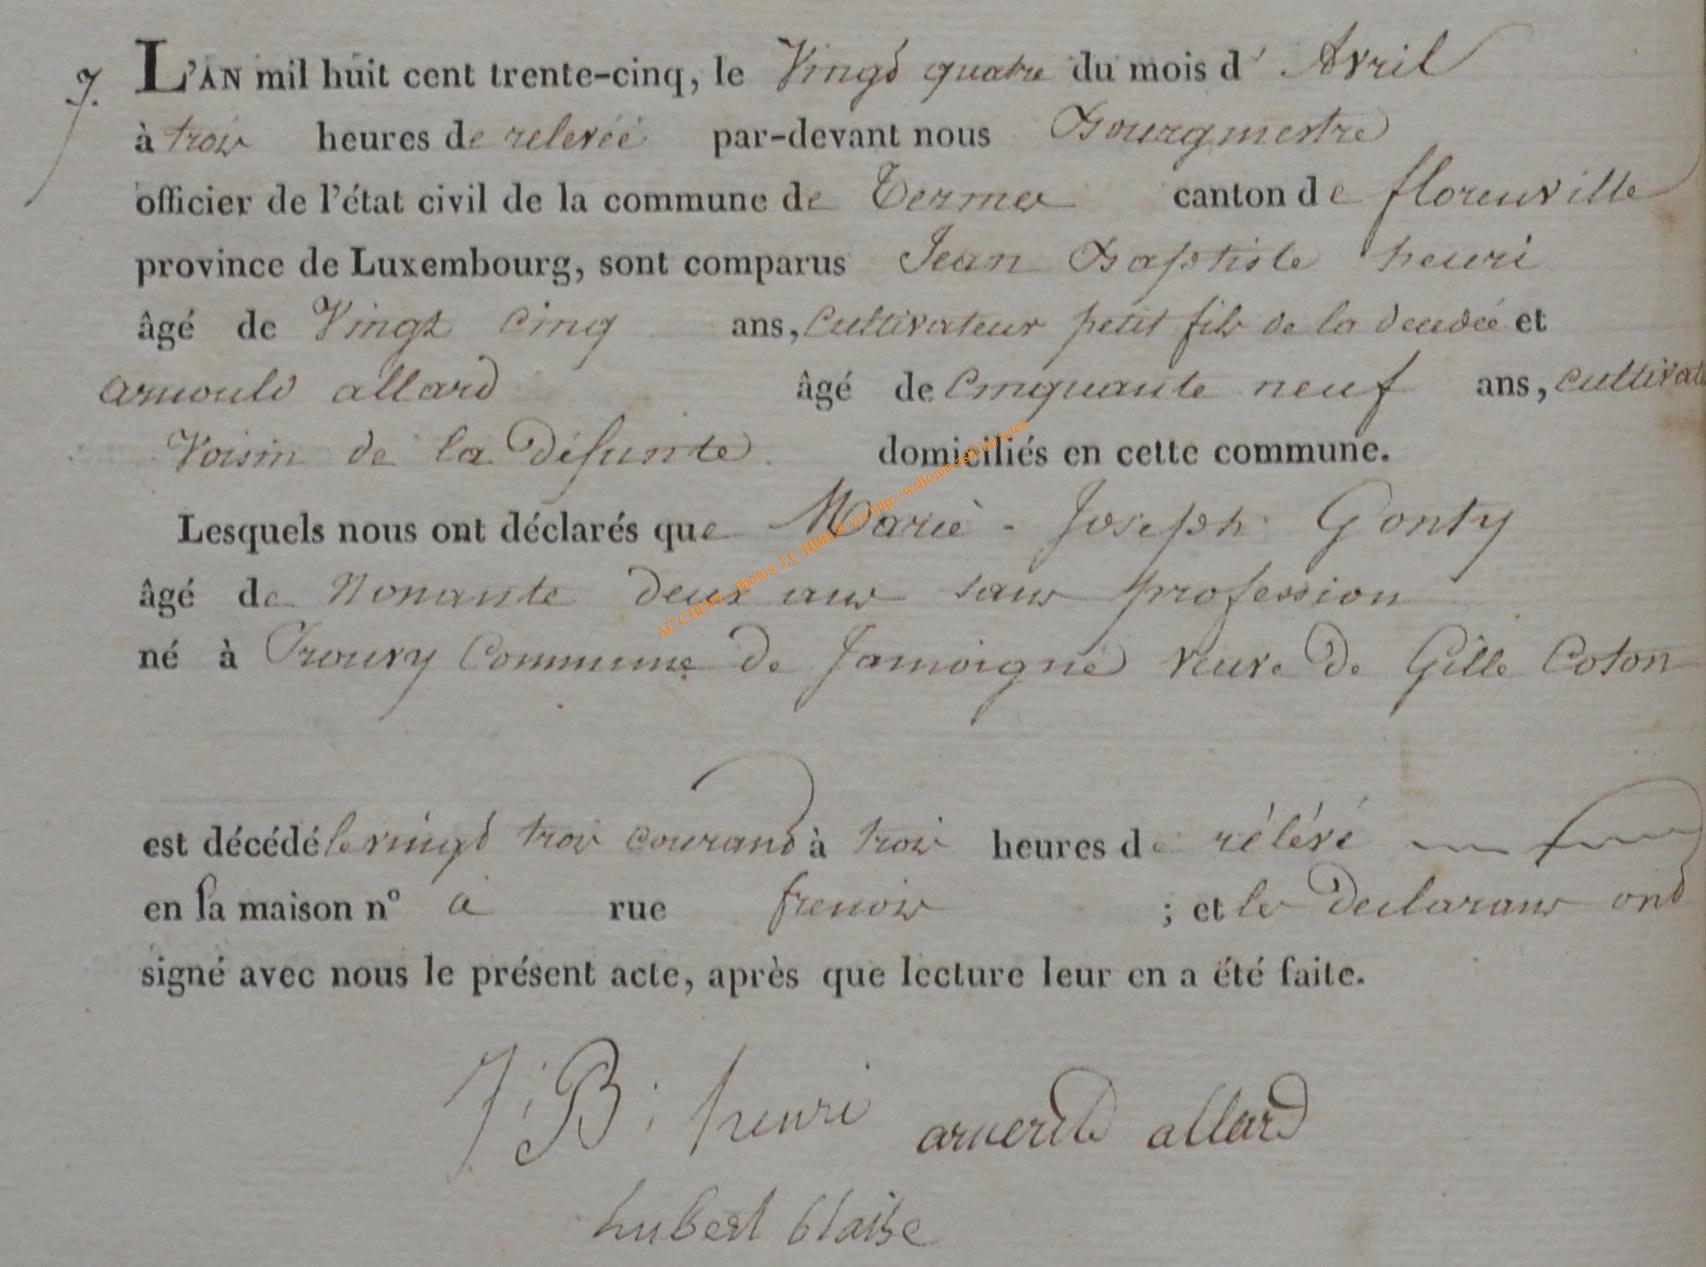 7. L'AN mil huit cent trente-cinq, le Vingd quatre du mois d' Avril
à trois heures de relevéé par-devant nous Bourgmestre
officier de l'état civil de la commune de Termes canton de florenville
province de Luxembourg, sont comparus Jean Baptiste henri
âgé de Vingt cinq ans, Cultivateur petit fils de la decedée et
arnould allard âgé de Cinquante neuf ans, cultivat
Voisin de la Défunte domiciliés en cette commune.
Lesquels nous ont déclarés que Marie - Joseph Gonty
âgé de Nonante Deux ans sans profession
né à Prouvy Commune de Jamoigne veuve De Gille Coton
est décédé le vingd trois courand à trois heures de rélévé
en sa maison n° à rue frenois ; et les Declarans ond
signé avec nous le présent acte, après que lecture leur en a été faite.
J: B: henri allard
hubert blaise
AC CHINY - Photos: J.C